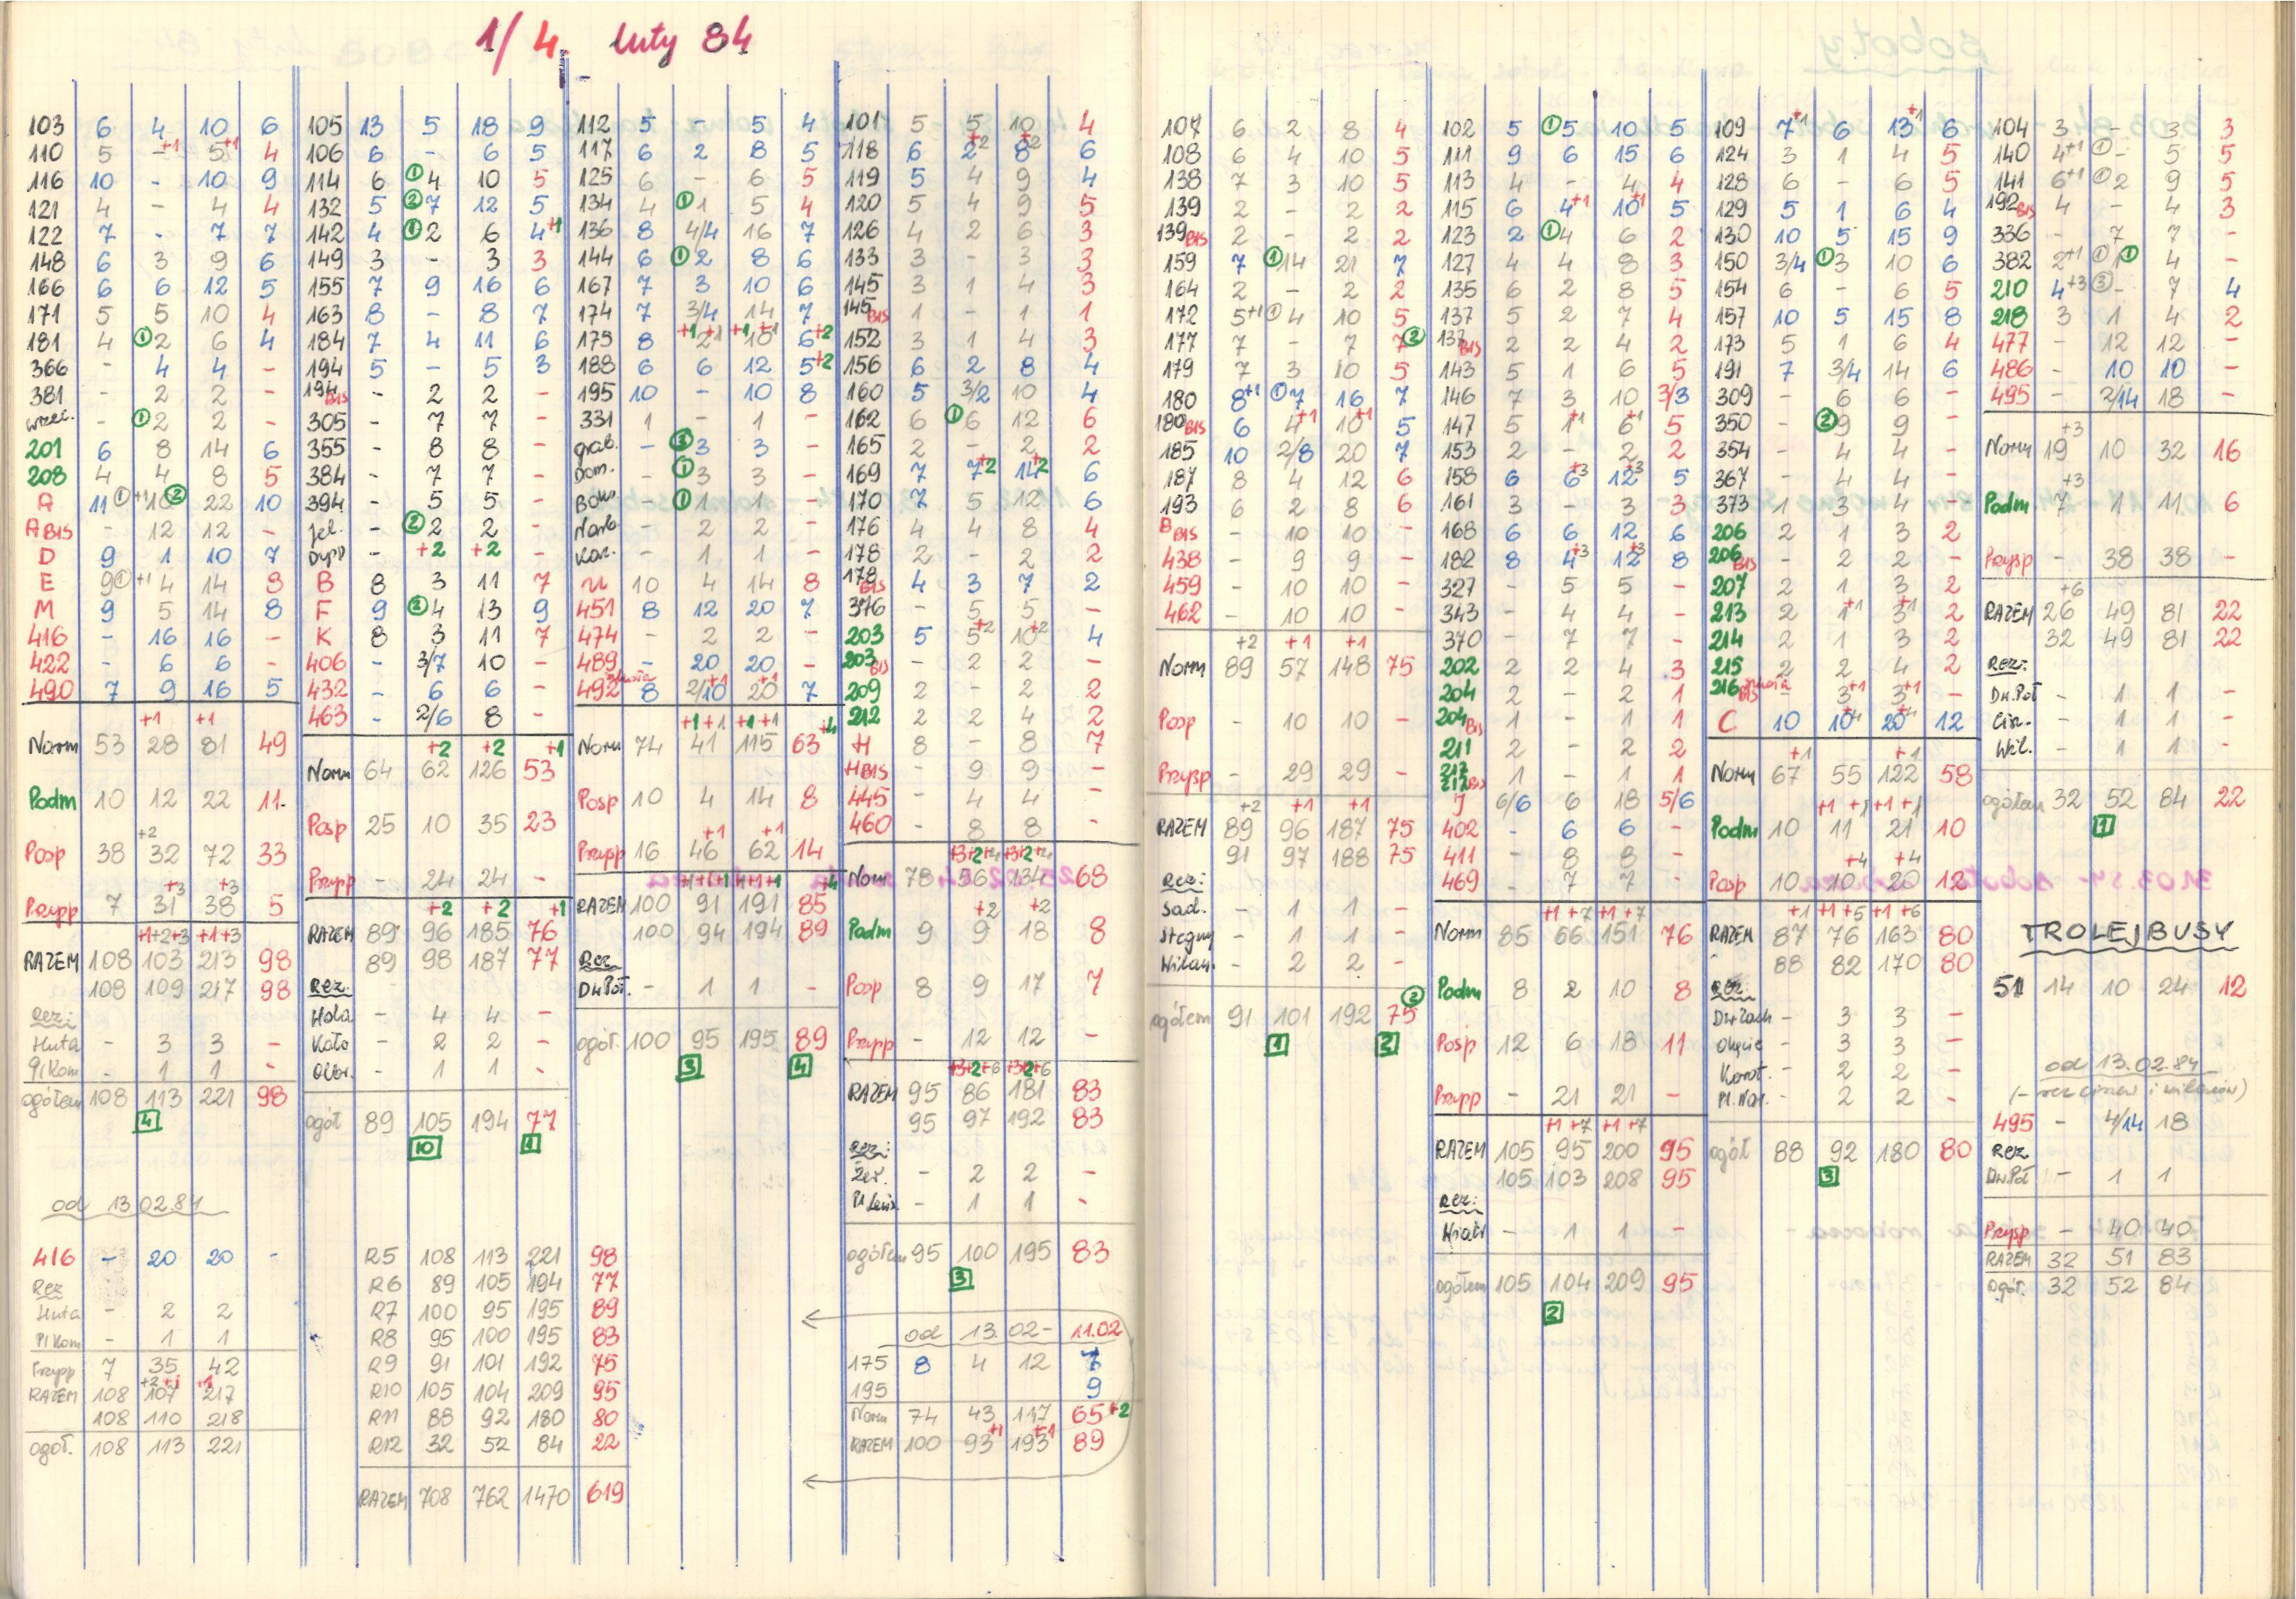 1/4. luty 84
103 6 4 10 6
110 5 - +1 5 +1 4
116 10 - 10 9
121 4 - 4 4
122 7 - 7 7
148 6 3 9 6
166 6 6 12 5
171 5 5 10 4
181 4 ① 2 6 4
366 - 4 4 -
381 - 2 2 -
wrzec. - ① 2 2 -
201 6 8 14 6
208 4 4 8 5
A 11 ① +1 10 ② 22 10
A BIS - 12 12 -
D 9 1 10 7
E 9 ① +1 4 14 8
M 9 5 14 8
416 - 16 16 -
422 - 6 6 -
490 7 9 16 5
+1 +1
Norm 53 28 81 49
Podm 10 12 22 11
+2
Posp 38 32 72 33
+3 +3
Przysp 7 31 38 5
+1+2+3 +1+3
RAZEM 108 103 213 98
108 109 217 98
Rez:
Huta - 3 3 -
Pl Kom - 1 1 -
ogółem 108 113 221 98
4
od 13.02.84
416 - 20 20 -
Rez
Huta - 2 2
Pl Kom - 1 1
Przysp 7 35 42
+2 +1 +1
RAZEM 108 107 217
108 110 218
ogół. 108 113 221
105 13 5 18 9
106 6 - 6 5
114 6 ① 4 10 5
132 5 ② 7 12 5
142 4 ① 2 6 4 +1
149 3 - 3 3
155 7 9 16 6
163 8 - 8 7
184 7 4 11 6
194 5 - 5 3
194 BIS - 2 2 -
305 - 7 7 -
355 - 8 8 -
384 - 7 7 -
394 - 5 5 -
Jel. - ② 2 2 -
Dysp - +2 +2 -
B 8 3 11 7
F 9 ② 4 13 9
K 8 3 11 7
406 - 3/7 10 -
432 - 6 6 -
463 - 2/6 8 -
+2 +2 +1
Norm 64 62 126 53
Posp 25 10 35 23
Przysp - 24 24 -
+2 +2 +1
RAZEM 89 96 185 76
89 98 187 77
Rez.
Hala - 4 4 -
Koło - 2 2 -
Olbr. - 1 1 -
ogół 89 105 194 77
10 1
R5 108 113 221 98
R6 89 105 194 77
R7 100 95 195 89
R8 95 100 195 83
R9 91 101 192 75
R10 105 104 209 95
R11 88 92 180 80
R12 32 52 84 22
RAZEM 708 762 1470 619
112 5 - 5 4
117 6 2 8 5
125 6 - 6 5
134 4 ① 1 5 4
136 8 4/4 16 7
144 6 ① 2 8 6
167 7 3 10 6
174 7 3/4 14 7
175 8 +1 2 +1 +1 10 +1 6 +2
188 6 6 12 5 +2
195 10 - 10 8
331 1 - 1 -
grab. - ③ 3 3 -
Dom. - ① 3 3 -
Boh. - ① 1 1 -
Narb - 2 2 -
Kar. - 1 1 -
U 10 4 14 8
451 8 12 20 7
474 - 2 2 -
489 - 20 20 -
492 8 2/10 +1 20 +1 7
+1+1 +1+1 +4
Norm 74 41 115 63
Posp 10 4 14 8
+1 +1
Przysp 16 46 62 14
+1+1+1 +1+1+1 +4
RAZEM 100 91 191 85
100 94 194 89
Rez
Dw.Poł. - 1 1 -
ogół. 100 95 195 89
3 4
101 5 5 10 4
118 6 2 +2 8 +2 6
119 5 4 9 4
120 5 4 9 5
126 4 2 6 3
133 3 - 3 3
145 3 1 4 3
145 BIS 1 - 1 1
152 3 1 4 3
156 6 2 8 4
160 5 3/2 10 4
162 6 ① 6 12 6
165 2 - 2 2
169 7 7 +2 14 +2 6
170 7 5 12 6
176 4 4 8 4
178 2 - 2 2
178 BIS 4 3 7 2
376 - 5 5 -
203 5 5 +2 10 +2 4
203 BIS - 2 2 -
209 2 - 2 2
212 2 2 4 2
H 8 - 8 7
H BIS - 9 9 -
445 - 4 4 -
460 - 8 8 -
+3+2+4 +3+2+4
Norm 78 56 134 68
+2 +2
Podm 9 9 18 8
Posp 8 9 17 7
Przysp - 12 12 -
+3+2+6 +3+2+6
RAZEM 95 86 181 83
95 97 192 83
Rez:
Żer. - 2 2 -
Pl Lenin. - 1 1 -
ogółem 95 100 195 83
3
od 13.02- 11.02
175 8 4 12 7
195 9
Norm 74 43 117 65 +2
RAZEM 100 93 +1 193 +1 89
107 6 2 8 4
108 6 4 10 5
138 7 3 10 5
139 2 - 2 2
139 BIS 2 - 2 2
159 7 ① 14 21 7
164 2 - 2 2
172 5 +1 ① 4 10 5
177 7 - 7 7 ②
179 7 3 10 5
180 8 +1 ① 7 16 7
180 BIS 6 4 +1 10 +1 5
185 10 2/8 20 7
187 8 4 12 6
193 6 2 8 6
B BIS - 10 10 -
438 - 9 9 -
459 - 10 10 -
462 - 10 10 -
+2 +1 +1
Norm 89 57 148 75
Posp - 10 10 -
Przysp - 29 29 -
+2 +1 +1
RAZEM 89 96 187 75
91 97 188 75
Rez:
Sad. - 1 1 -
Stegny - 1 1 -
Wilan. - 2 2 -
ogółem 91 101 192 75 ②
1 2
102 5 ① 5 10 5
111 9 6 15 6
113 4 - 4 4
115 6 4 +1 10 +1 5
123 2 ① 4 6 2
127 4 4 8 3
135 6 2 8 5
137 5 2 7 4
137 BIS 2 2 4 2
143 5 1 6 5
146 7 3 10 3/3
147 5 1 +1 6 +1 5
153 2 - 2 2
158 6 6 +3 12 +3 5
161 3 - 3 3
168 6 6 12 6
182 8 4 +3 12 +3 8
327 - 5 5 -
343 - 4 4 -
370 - 7 7 -
202 2 2 4 3
204 2 - 2 1
204 BIS 1 - 1 1
211 2 - 2 2
217
212 BIS 1 - 1 1
J 6/6 6 18 5/6
402 - 6 6 -
411 - 8 8 -
469 - 7 7 -
+1 +7 +1 +7
Norm 85 66 151 76
Podm 8 2 10 8
Posp 12 6 18 11
Przysp - 21 21 -
+1 +7 +1 +7
RAZEM 105 95 200 95
105 103 208 95
Rez:
Wiatr - 1 1 -
ogółem 105 104 209 95
2
109 7 +1 6 13 +1 6
124 3 1 4 5
128 6 - 6 5
129 5 1 6 4
130 10 5 15 9
150 3/4 ① 3 10 6
154 6 - 6 5
157 10 5 15 8
173 5 1 6 4
191 7 3/4 14 6
309 - 6 6 -
350 - ② 9 9 -
354 - 4 4 -
367 - 4 4 -
373 1 3 4 -
206 2 1 3 2
206 BIS - 2 2 -
207 2 1 3 2
213 2 1 +1 3 +1 2
214 2 1 3 2
215 2 2 4 2
216 BIS - 3 +1 3 +1 -
C 10 10 +4 20 +4 12
+1 +1
Norm 67 55 122 58
+1 +1 +1 +1
Podm 10 11 21 10
+4 +4
Posp 10 10 20 12
+1 +1 +5 +1 +6
RAZEM 87 76 163 80
88 82 170 80
Rez:
Dw Zach - 3 3 -
Okęcie - 3 3 -
Korot. - 2 2 -
Pl. Nar. - 2 2 -
ogół 88 92 180 80
3
104 3 - 3 3
140 4 +1 ① - 5 5
141 6 +1 ① 2 9 5
192 BIS 4 - 4 3
336 - 7 7 -
382 2 +1 ① 1 ① 4 -
210 4 +3 ③ - 7 4
218 3 1 4 2
477 - 12 12 -
486 - 10 10 -
495 - 2/14 18 -
+3
Norm 19 10 32 16
+3
Podm 7 1 11 6
Przysp - 38 38 -
+6
RAZEM 26 49 81 22
32 49 81 22
Rez:
Dw.Poł - 1 1 -
Cin. - 1 1 -
Wil. - 1 1 -
ogółem 32 52 84 22
1
TROLEJBUSY
51 14 10 24 12
od 13.02.84
(- rez cinew i wilanów)
495 - 4/14 18
Rez
Dw.Poł - 1 1
Przysp - 40 40
RAZEM 32 51 83
ogół. 32 52 84